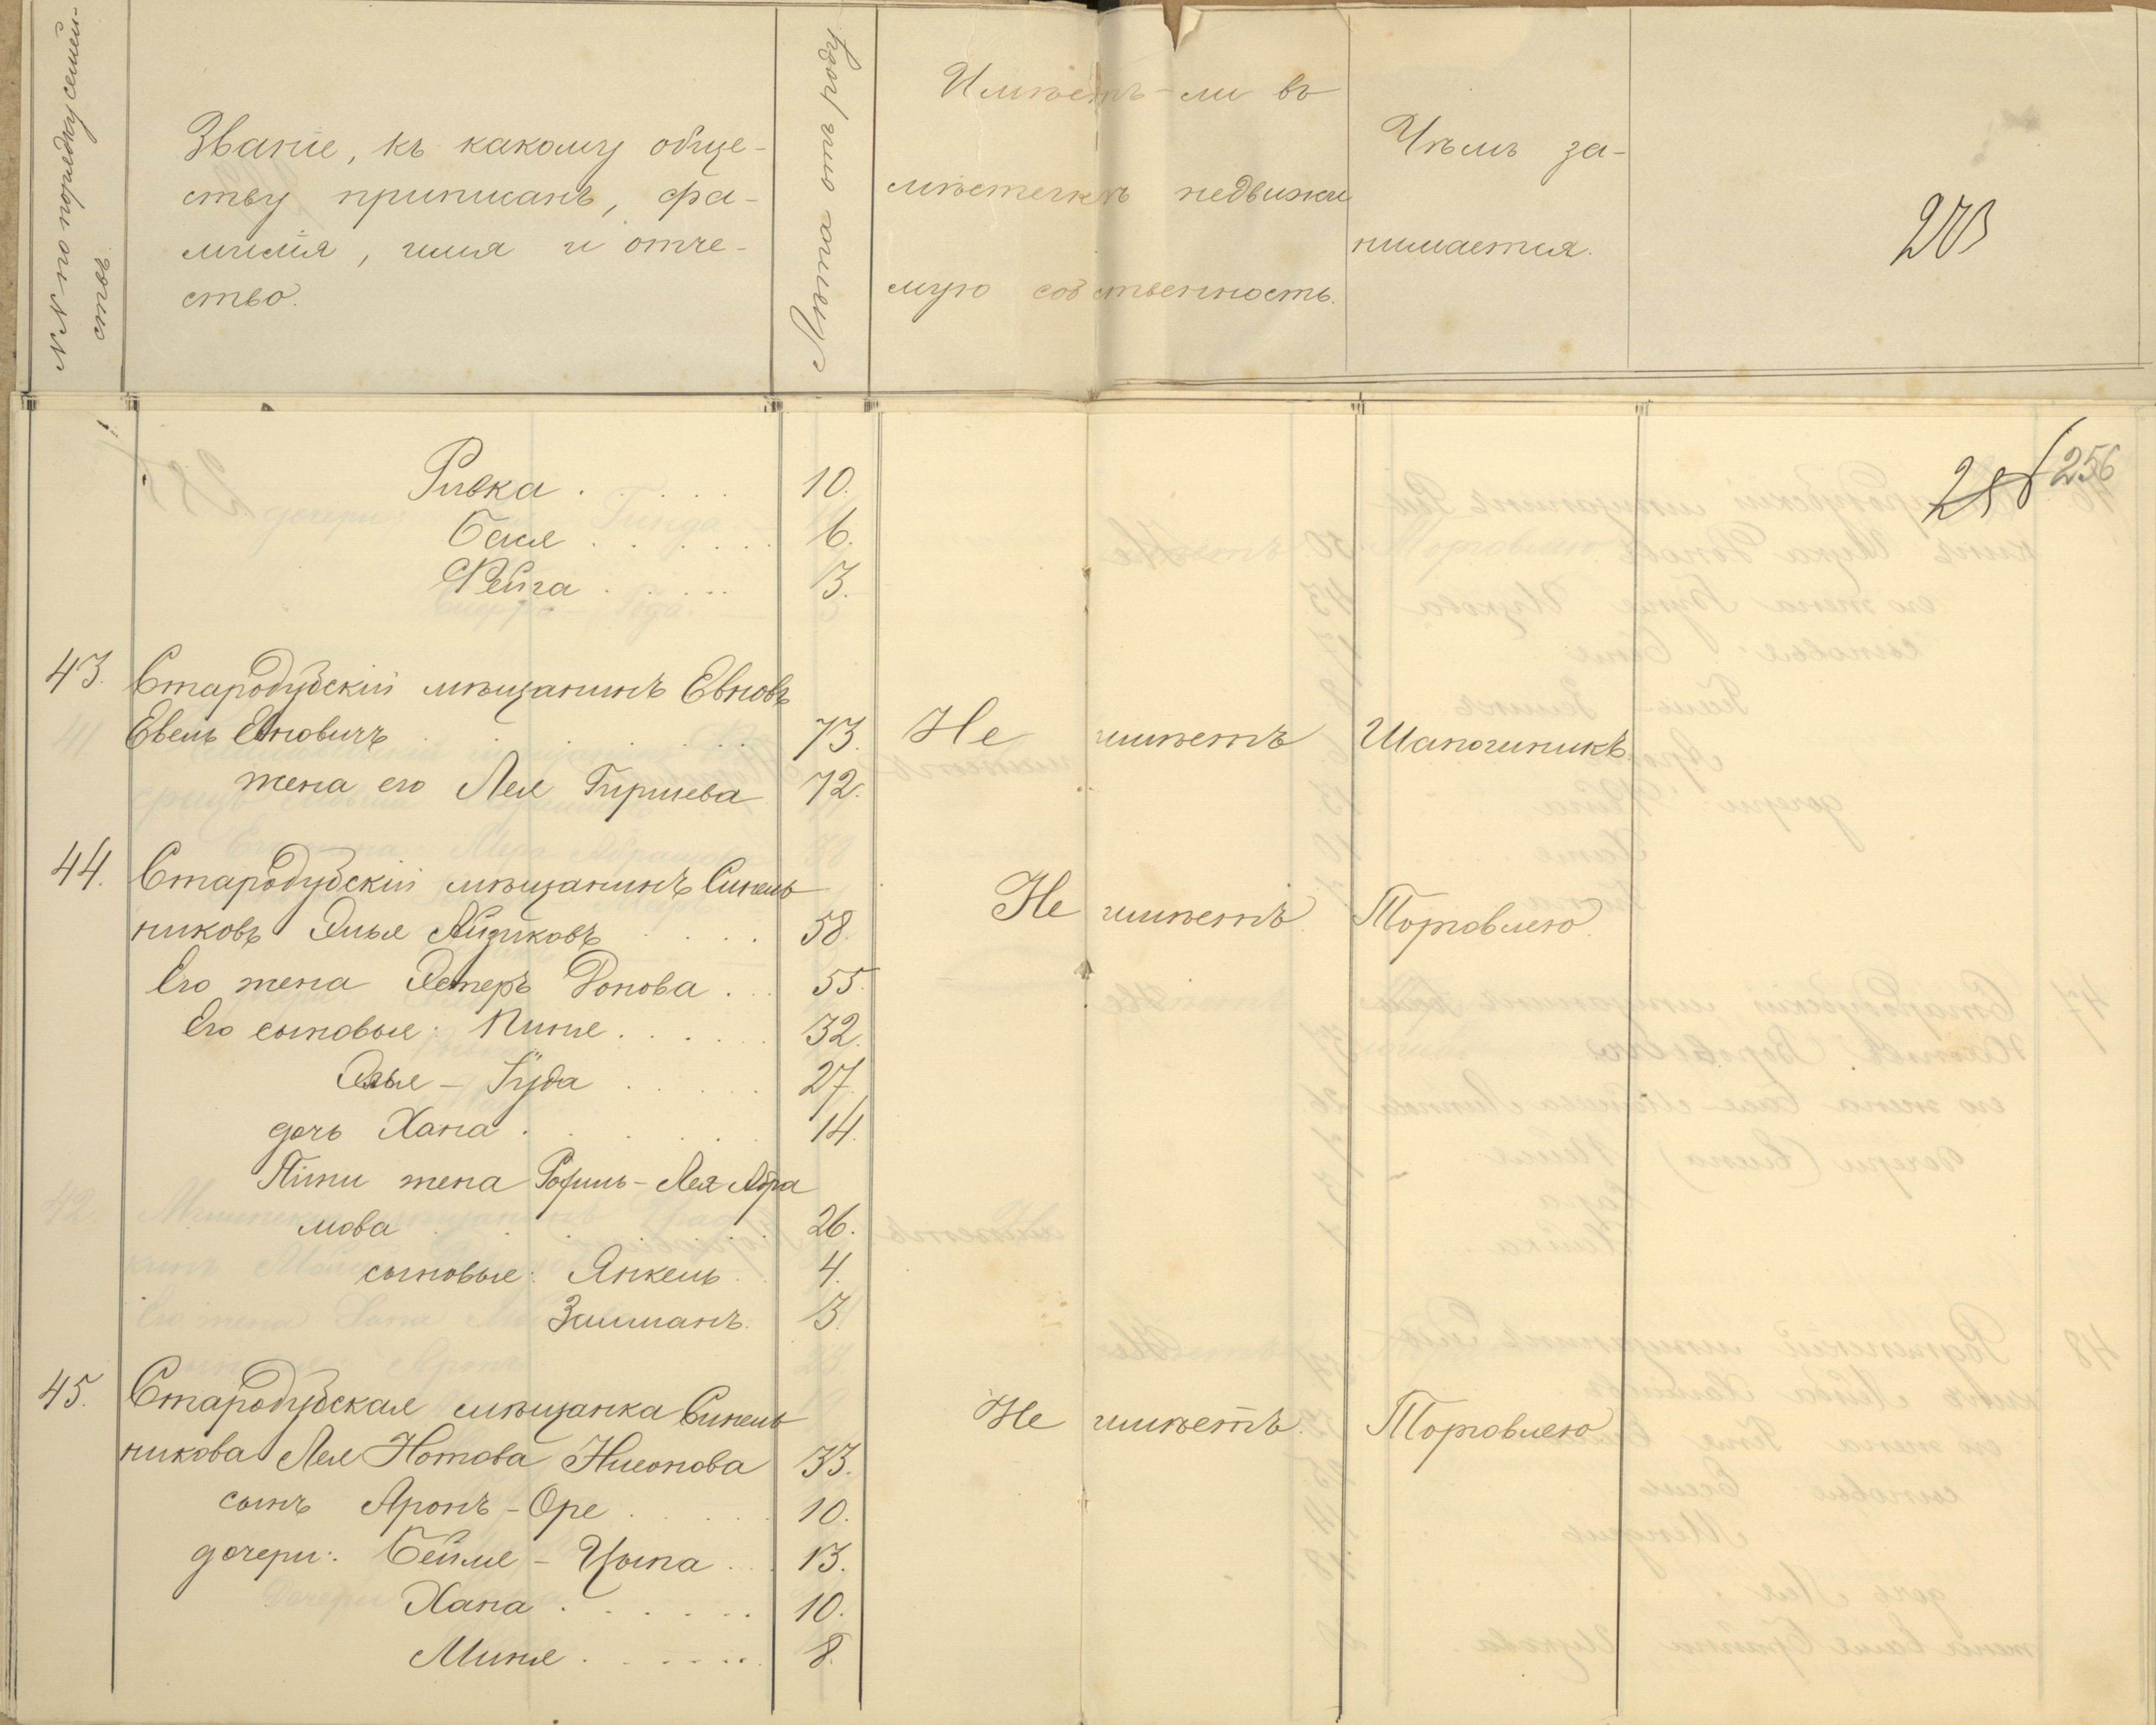 №№ по порядку семей-
ствъ
Званіе, къ какому обще-
ству приписанъ, фа-
милія, имя и отче-
ство.
Лѣта отъ роду
Имѣетъ-ли въ
мѣстечкѣ недвижи
мую собственность.
Чѣмъ за-
нимается.
203
256
Ривка . . . . . 10.
Бася . . . . . . 6.
Фейга . . . . . 3.
43. Стародубскій мѣщанинъ Евновъ
Евель Евновичъ . . . . . 73. Не имѣетъ Шапочникъ
жена его Лея Гиршева 72.
44. Стародубскій мѣщанинъ Синель
никовъ Элья Айзиковъ . . . . 58. Не имѣетъ. Торговлею.
Его жена Эстеръ Ронова . . . 55.
Его сыновья: Пиня . . . . . . 32.
Элья - Іуда . . . . . 27.
дочь Хана . . . . . . 14.
Піти жена Рохиль - Лея Абра
мова . . . . . . 26.
сыновья: Янкель . 4.
Залманъ. 3.
45. Стародубская мѣщанка Синель
никова Лея Нотова Нисонова 33. Не имѣетъ. Торговлею
сынъ Аронъ - Оре . . . . . 10.
дочери: Бейля - Цыпа . . . 13.
Хана . . . . . . 10.
Миня . . . . . . 8.